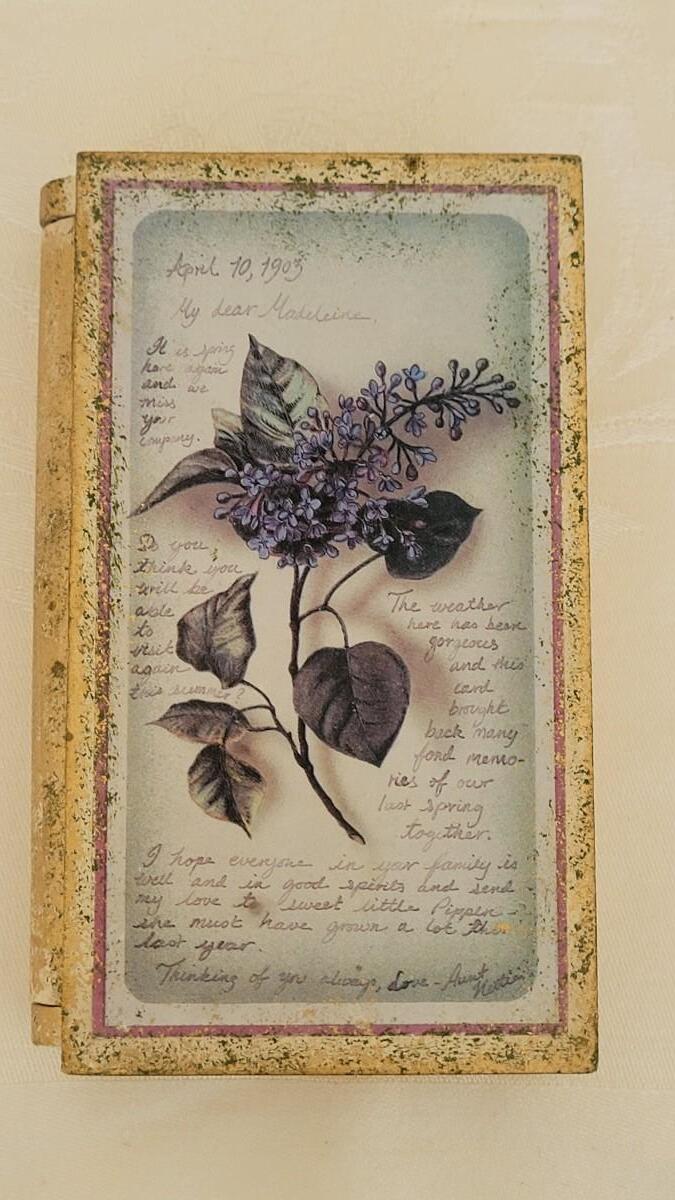 April 10, 1903
My dear Madeleine,
It is spring
here again
and we
miss
your
company.
Do you
think you
will be
able
to
visit
again
this summer?
The weather
here has been
gorgeous
and this
card
brought
back many
fond memo-
ries of our
last spring
together.
I hope everyone in your family is
well and in good spirits and send
my love to sweet little Pippen -
she must have grown a lot the
last year.
Thinking of you always, Love - Aunt